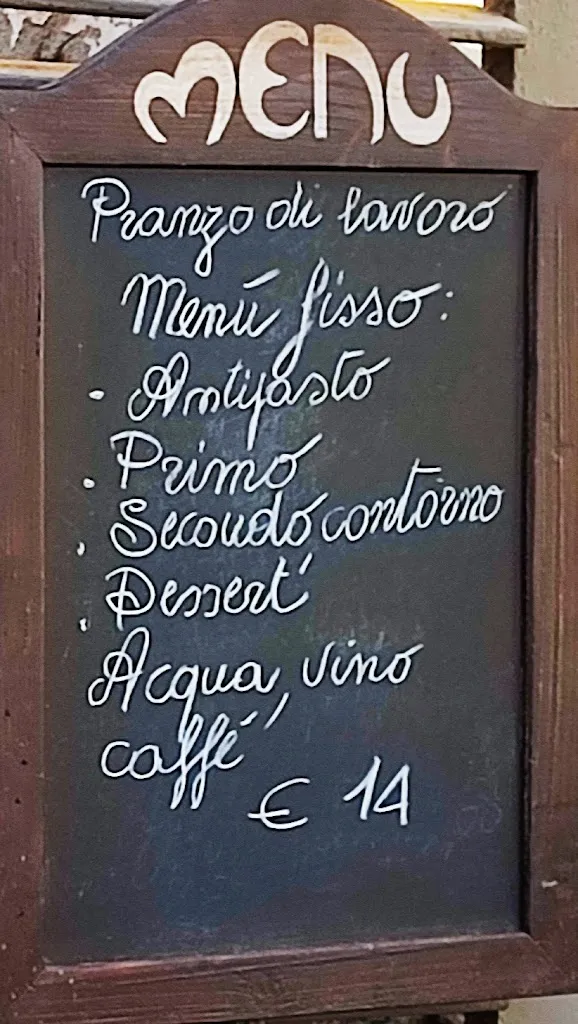 MENU
Pranzo di lavoro
Menú fisso:
- Antipasto
. Primo
. Secondo contorno
. Dessert
Acqua, vino
caffé
€ 14